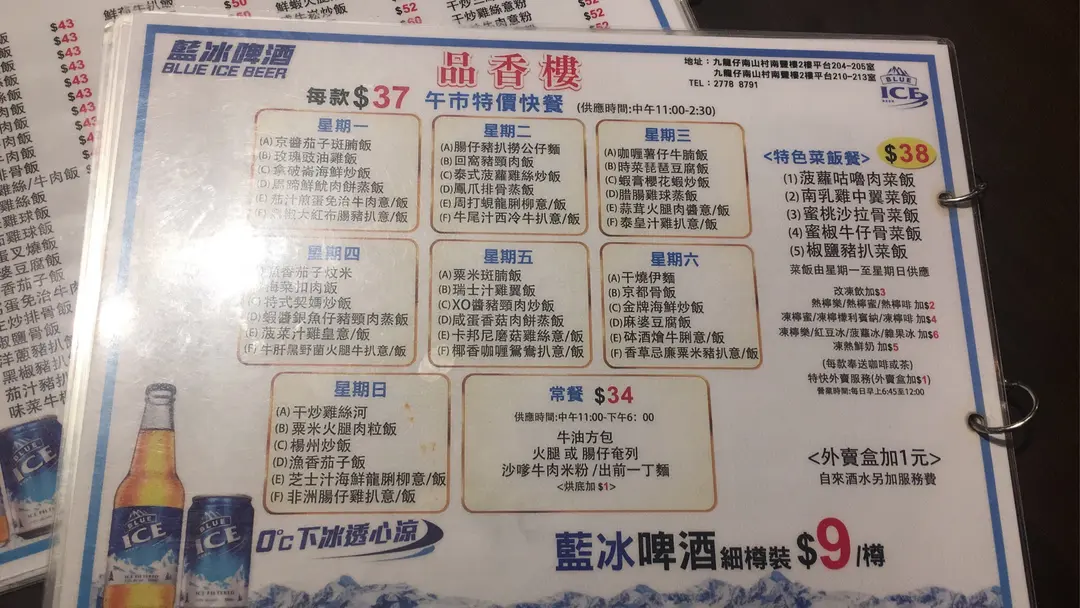 $43
$43
$43
$43
$43
$50
$52
$52
$52
鮮蝦火腿
干炒雞絲意粉
藍冰啤酒
BLUE ICE BEER
品香樓
地址:九龍仔南山村南豐樓2樓平台204-205室
九龍仔南山村南豐樓2樓平台210-213室
TEL:2778 8791
BLUE
ICE
BEER
每款$37 午市特價快餐 (供應時間:中午11:00-2:30)
星期一
(A)京醬茄子斑腩飯
(B)玫瑰豉油雞飯
(C)拿破崙海鮮炒飯
(D)馬蹄鮮魷肉餅蒸飯
(E)茄汁煎蛋免治牛肉意/飯
大紅布腸豬扒意/飯
星期二
(A)腸仔豬扒撈公仔麵
(B)回窩豬頸肉飯
(C)泰式菠蘿雞絲炒飯
(D)鳳爪排骨蒸飯
(E)周打蜆龍脷柳意/飯
(F)牛尾汁西冷牛扒意/飯
星期三
(A)咖喱薯仔牛腩飯
(B)時菜琵琶豆腐飯
(C)蝦膏櫻花蝦炒飯
(D)腊腸雞球蒸飯
(E)蒜茸火腿肉醬意/飯
(F)泰皇汁雞扒意/飯
<特色菜飯餐> $38
(1)菠蘿咕嚕肉菜飯
(2)南乳雞中翼菜飯
(3)蜜桃沙拉骨菜飯
(4)蜜椒牛仔骨菜飯
(5)椒鹽豬扒菜飯
菜飯由星期一至星期日供應
星期四
香茄子炆米
菜扣肉飯
(C)特式契媽炒飯
(D)蝦醬銀魚仔豬頸肉蒸飯
(E)菠菜汁雞皇意/飯
(F)牛肝黑野菌火腿牛扒意/飯
星期五
(A)粟米斑腩飯
(B)瑞士汁雞翼飯
(C)XO醬豬頸肉炒飯
(D)咸蛋香菇肉餅蒸飯
(E)卡邦尼蘑菇雞絲意/飯
(F)椰香咖喱鴛鴦扒意/飯
星期六
(A)干燒伊麵
(B)京都骨飯
(C)金牌海鮮炒飯
(D)麻婆豆腐飯
(E)砵酒燴牛脷意/飯
(F)香草忌廉粟米豬扒意/飯
改凍飲加$3
熱檸樂/熱檸蜜/熱檸啡 加$2
凍檸蜜/凍檸檬利賓納/凍檸啡 加$4
凍檸樂/紅豆冰/菠蘿冰/雜果冰 加$6
凍熱鮮奶 加$5
(每款奉送咖啡或茶)
特快外賣服務(外賣盒加$1)
營業時間:每日早上6:45至12:00
星期日
(A)干炒雞絲河
(B)粟米火腿肉粒飯
(C)楊州炒飯
(D)漁香茄子飯
(E)芝士汁海鮮龍脷柳意/飯
(F)非洲腸仔雞扒意/飯
常餐 $34
供應時間:中午11:00-下午6:00
牛油方包
火腿 或 腸仔奄列
沙嗲牛肉米粉/出前一丁麵
<烘底加$1>
<外賣盒加1元>
自來酒水另加服務費
BLUE
ICE
BLUE
ICE
0℃下冰透心涼
藍冰啤酒 細樽裝 $9/樽
ICE